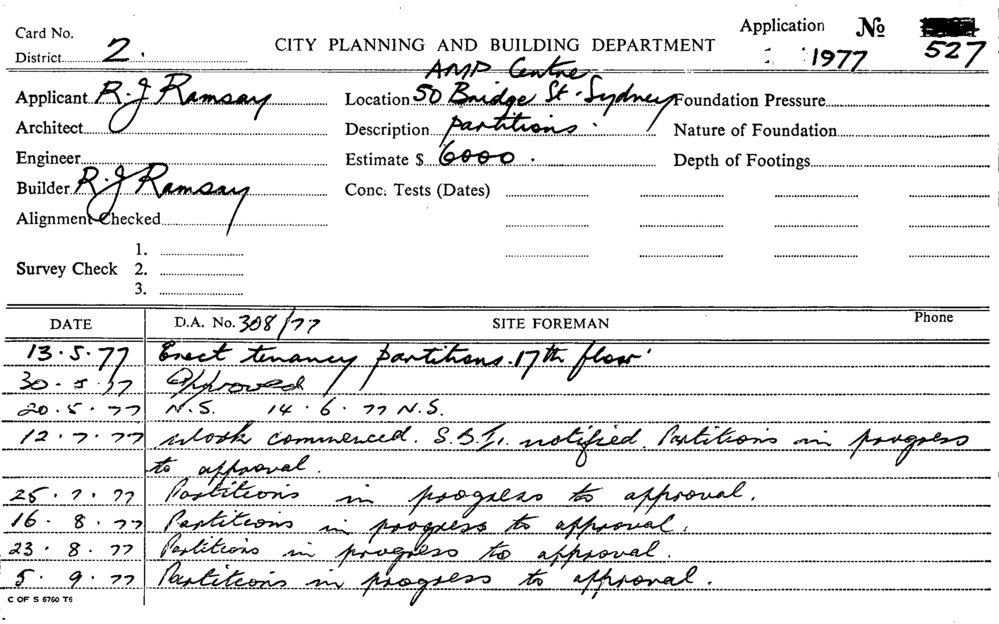 Card No. Application No
District 2. CITY PLANNING AND BUILDING DEPARTMENT 1977 527
AMP Centre
Applicant R.J Ramsay Location 50 Bridge St. Sydney Foundation Pressure
Architect Description partitions. Nature of Foundation
Engineer Estimate $ 6000. Depth of Footings
Builder R.J Ramsay Conc. Tests (Dates)
Alignment Checked
1.
Survey Check 2.
3.
DATE D.A. No. 308/77 SITE FOREMAN Phone
13.5.77 Erect tenancy partitions. 17th floor
30.5.77 Approved
20.5.77 N.S. 14.6.77 N.S.
12.7.77 Work commenced. notified. Partitions in progress
to approval.
25.7.77 Partitions in progress to approval.
16.8.77 Partitions in progress to approval.
23.8.77 Partitions in progress to approval.
5.9.77 Partitions in progress to approval.
C OF S 6760 T6